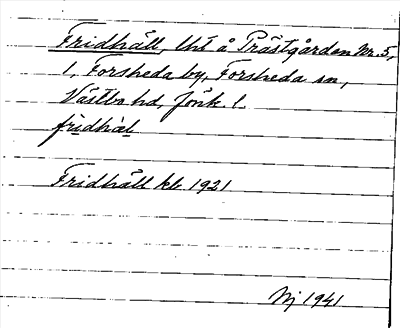 Fridhäll, lht å Prästgården Nr. 5,
1, Forsheda by, Forsheda sn,
Västbo hd, Jönk. l.
fridhäl
Fridhäll kb 1921
Nj 1941